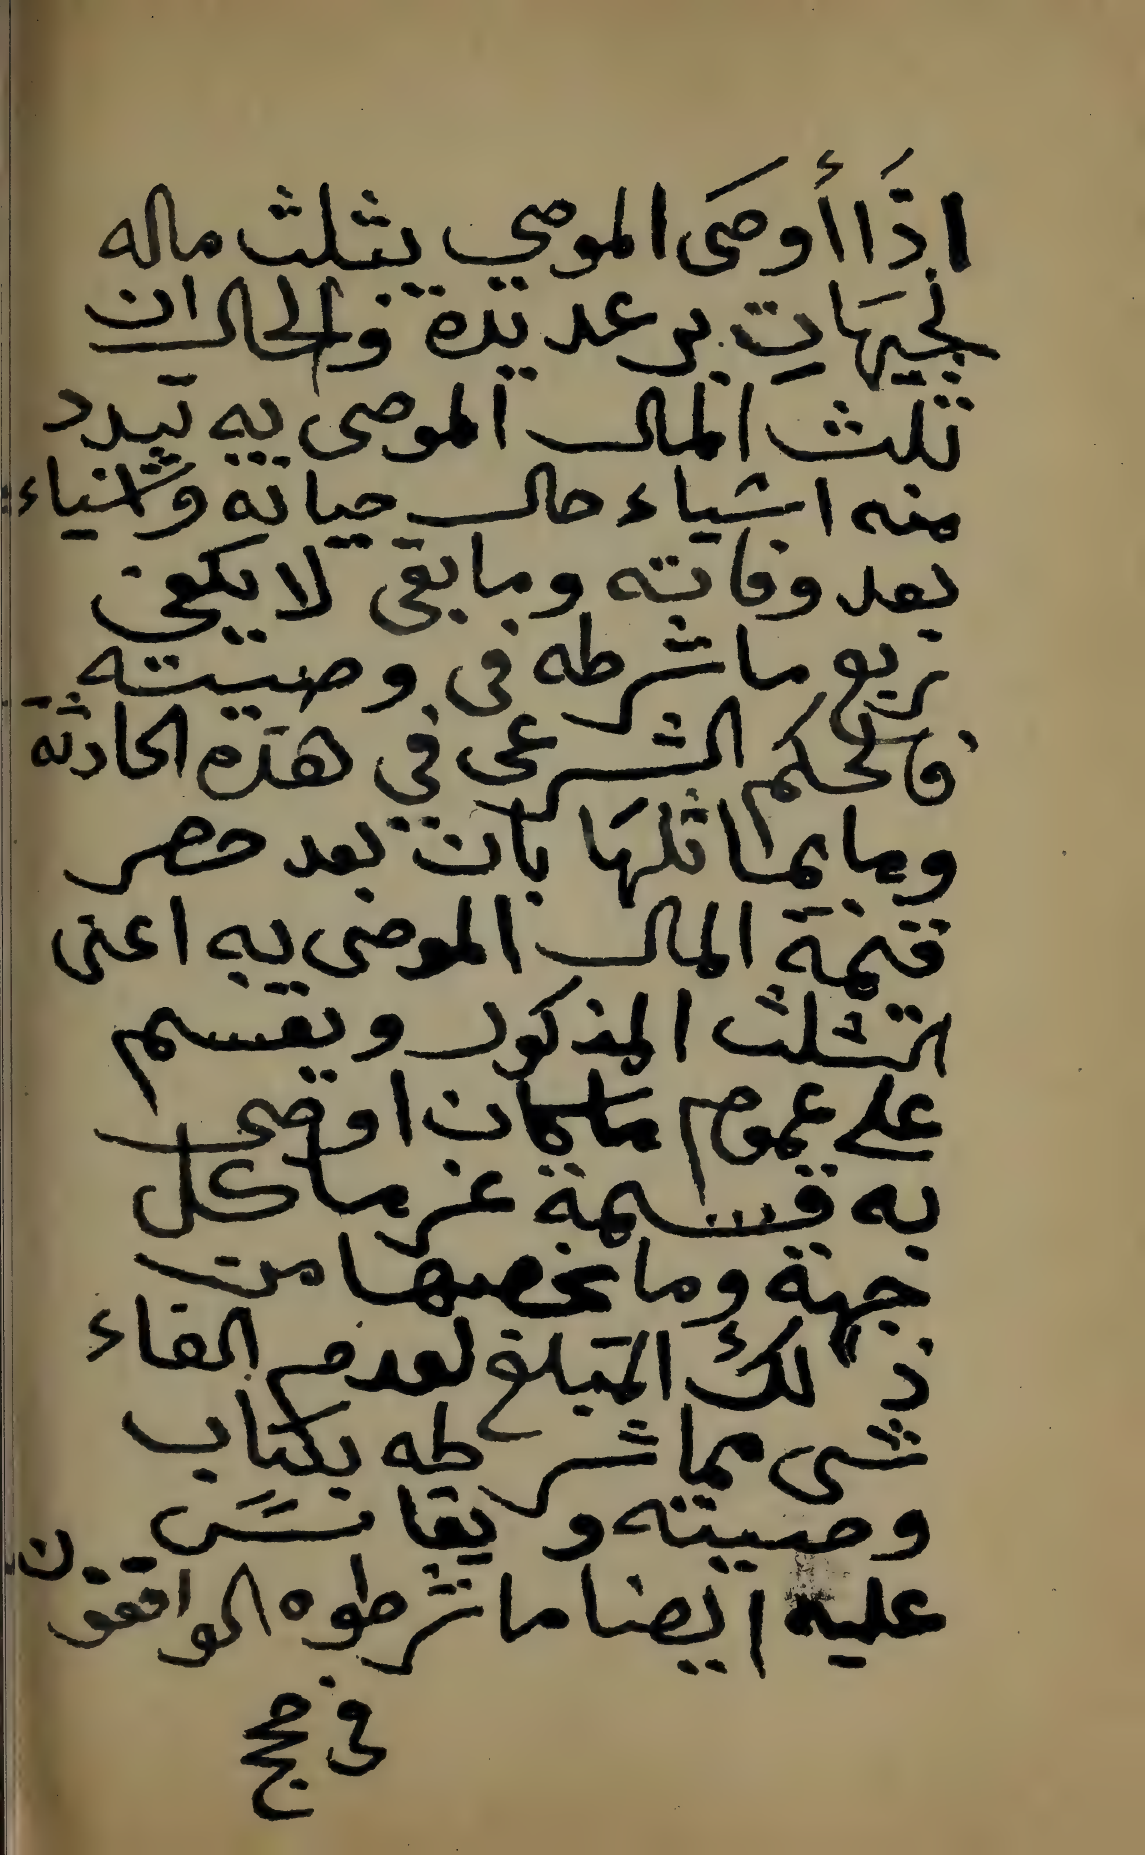 اذَا أوصَى الموصي بثلث ماله
لجِهَاتِ بر عديدة والحال ان
ثلث المال الموصى به تبدد
منه اشياء حال حياته واشياء
بعد وفاته وما بقى لا يكفى
ربع ما شرطه فى وصيته
فالحكم الشرعى في هذه الحادثة
وما يماثلهَا بان بعد حصر
قيمة المال الموصى به اعنى
الثلث المذكور ويقسم
على عموم ما كان اوصى
به قسمة غرما كل
جهة وما يخصها من
ذلك المبلغ لعدم الغاء
شى مما شرطه بكتاب
وصيته ويقاس
عليه ايضا ما شرطوه الواقفون
فى حجج